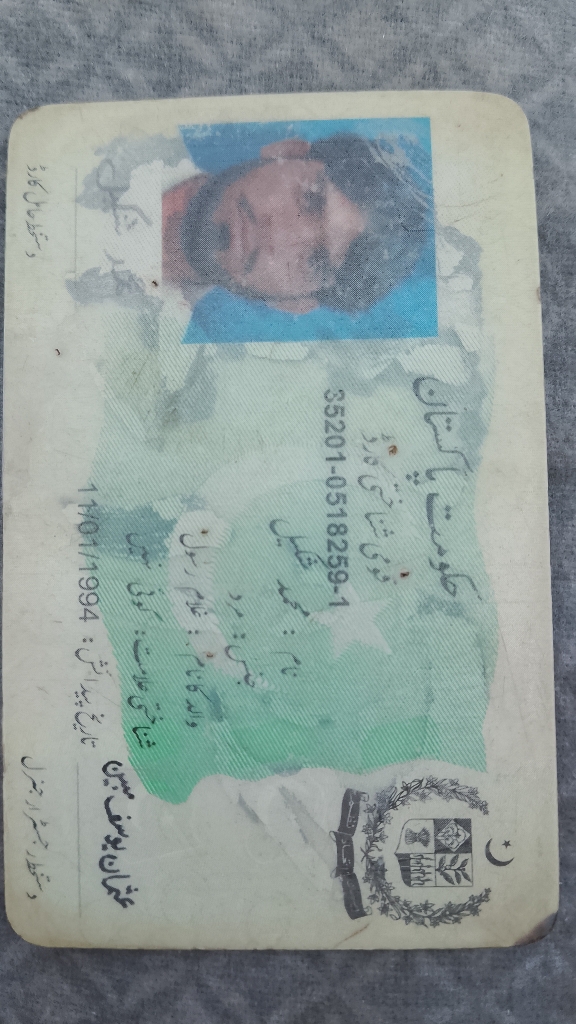 حکومت پاکستان
قومی شناختی کارڈ
35201-0518259-1
نام : محمد شکیل
جنس : مرد
والد کا نام : غلام رسول
شناختی علامت : کوئی نہیں
تاریخ پیدائش : 11/01/1994
محمد شکیل
دستخط حامل کارڈ
عثمان یوسف مبین
دستخط رجسٹرار جنرل